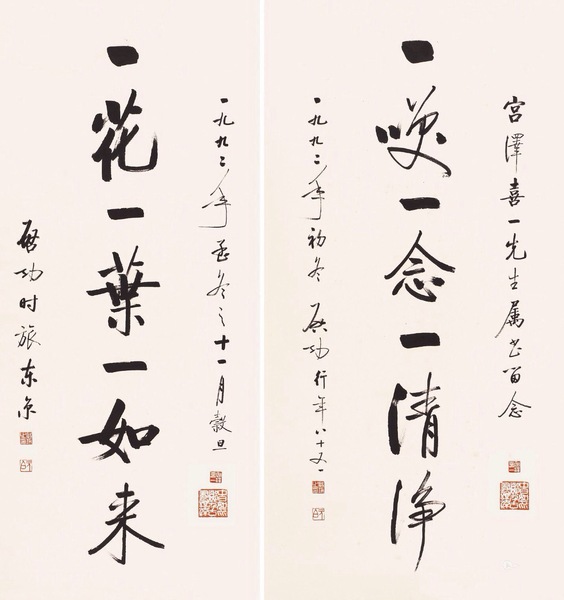 宮澤喜一先生属书留念
一咲一念一清净
一九九二年初冬 啓功行年八十又一
一九九二年孟冬之十一月穀旦
一花一葉一如来
啓功时旅东京